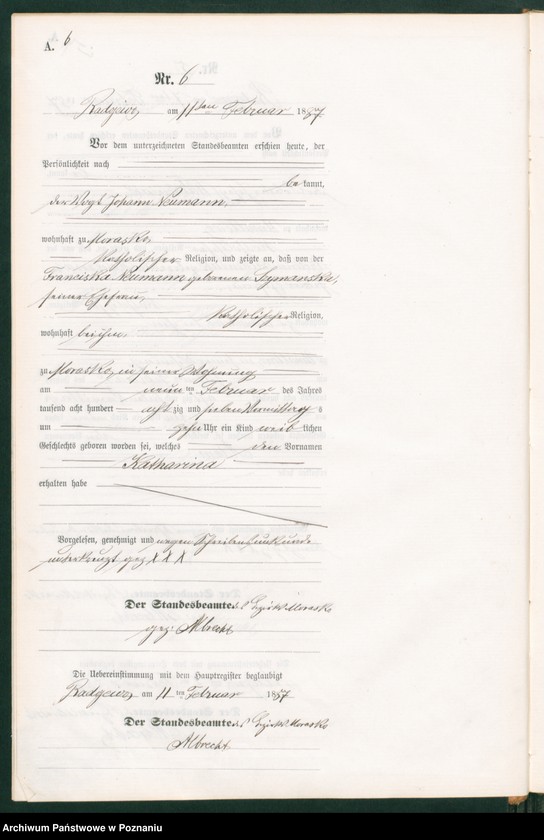 A. 6
Nr. 6
am 11ten Februar 1887
Vor dem unterzeichneten Standesbeamten erschien heute, der
Persönlichkeit nach
bekannt,
der Vogt Johann Neumann,
wohnhaft zu Morasko,
Katholischer Religion, und zeigte an, daß von der
Franciska Neumann geborenen Szymanska,
seiner Ehefrau,
Katholischer Religion,
wohnhaft bei ihm,
zu Morasko, in seiner Wohnung
am neunten Februar des Jahres
tausend acht hundert achtzig und sieben Vormittags
um zehn Uhr ein Kind weiblichen
Geschlechts geboren worden sei, welches den Vornamen
Katharina
erhalten habe
Vorgelesen, genehmigt und wegen Schreibensunkunde
unterkreuzt gez. X X X
Der Standesbeamte des Bezirks Morasko
gez: Albrecht
Die Uebereinstimmung mit dem Hauptregister beglaubigt
am 11ten Februar 1887
Der Standesbeamte des Bezirks Morasko
Albrecht
Archiwum Państwowe w Poznaniu